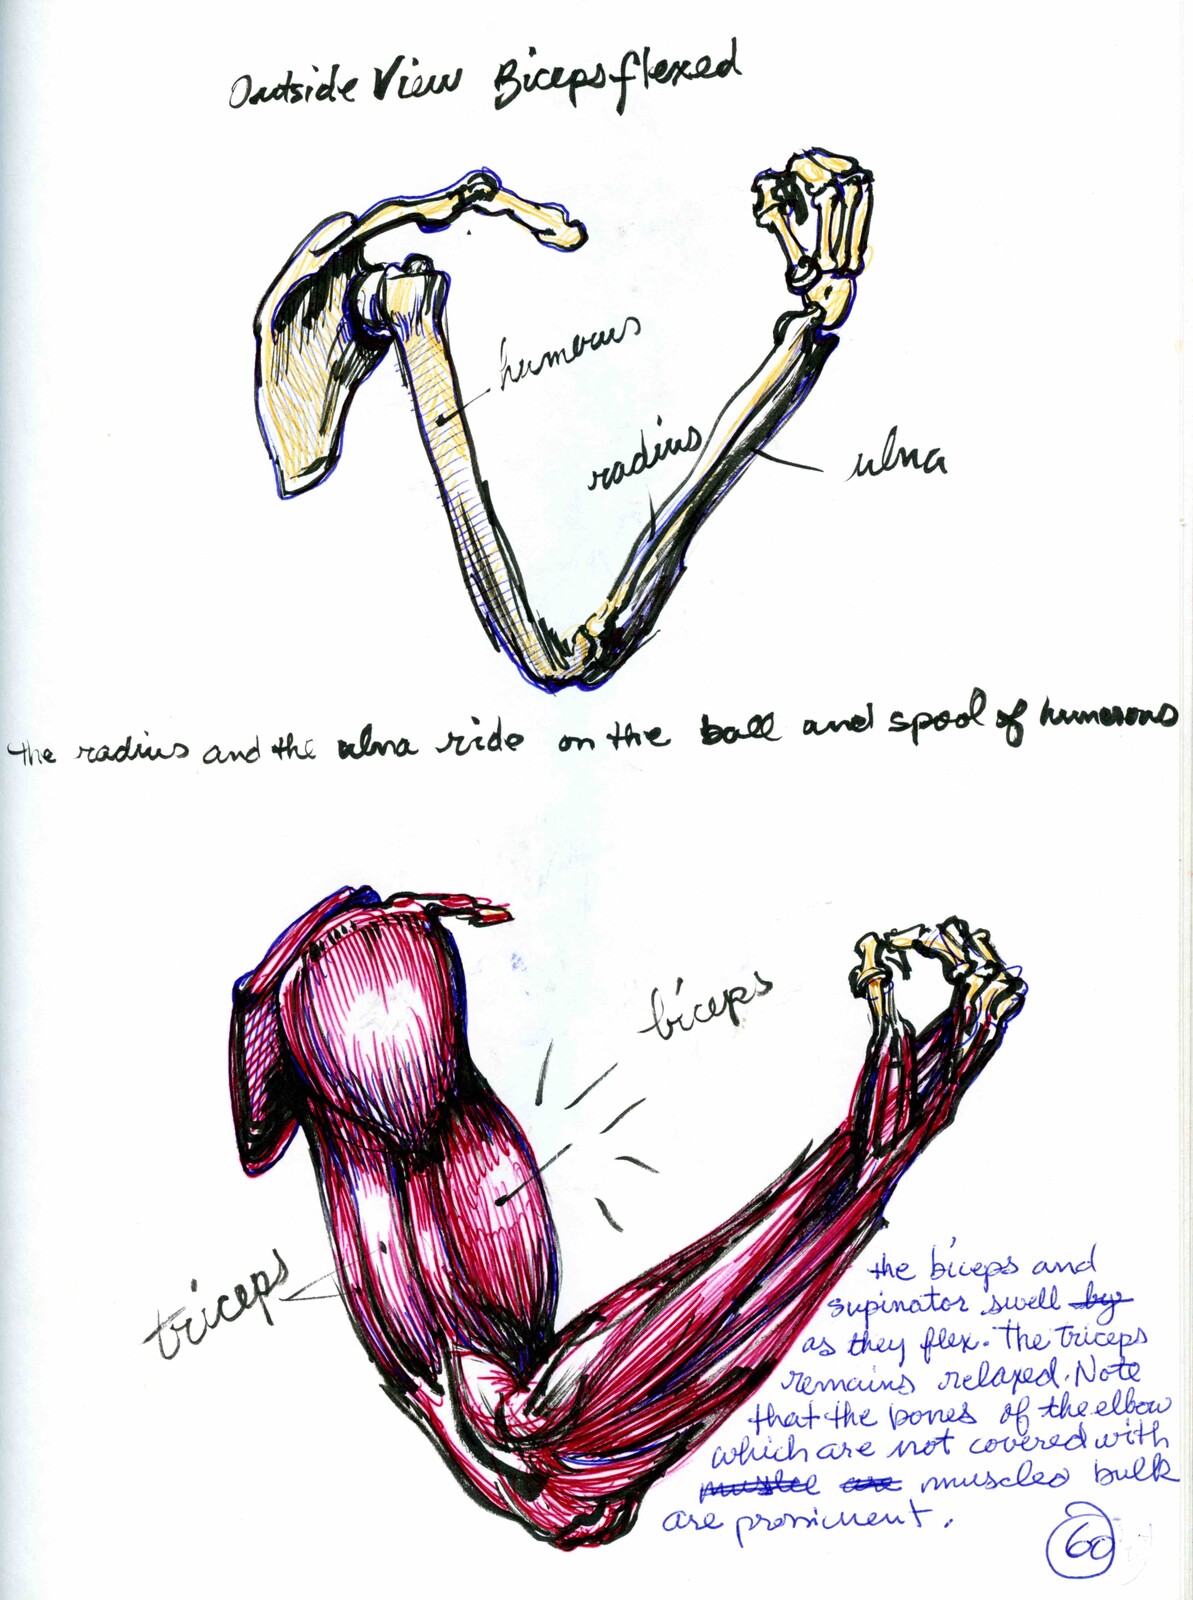 Outside View Biceps flexed
humerus
radius
ulna
the radius and the ulna ride on the ball and spool of humerous
biceps
triceps
the biceps and
supinator swell by
as they flex. The triceps
remains relaxed. Note
that the bones of the elbow
which are not covered with
muscle are muscles bulk
are prominent.
60